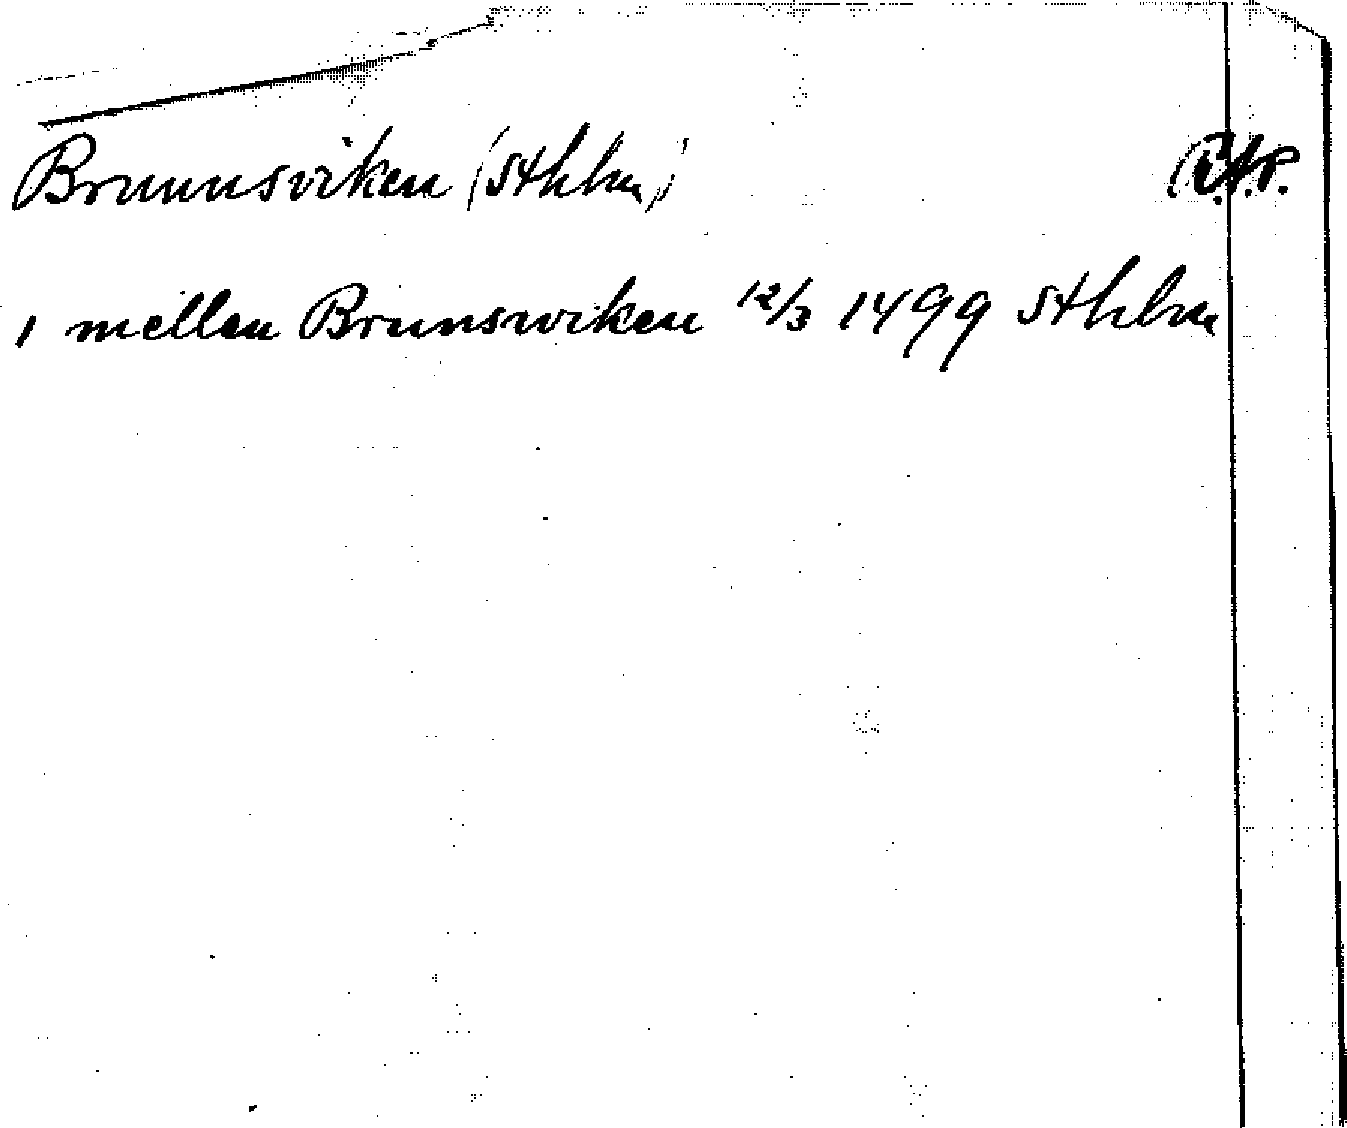 Brunnsviken (Sthlm)
1 mellen Brunswiken 12/3 1499 Sthlm